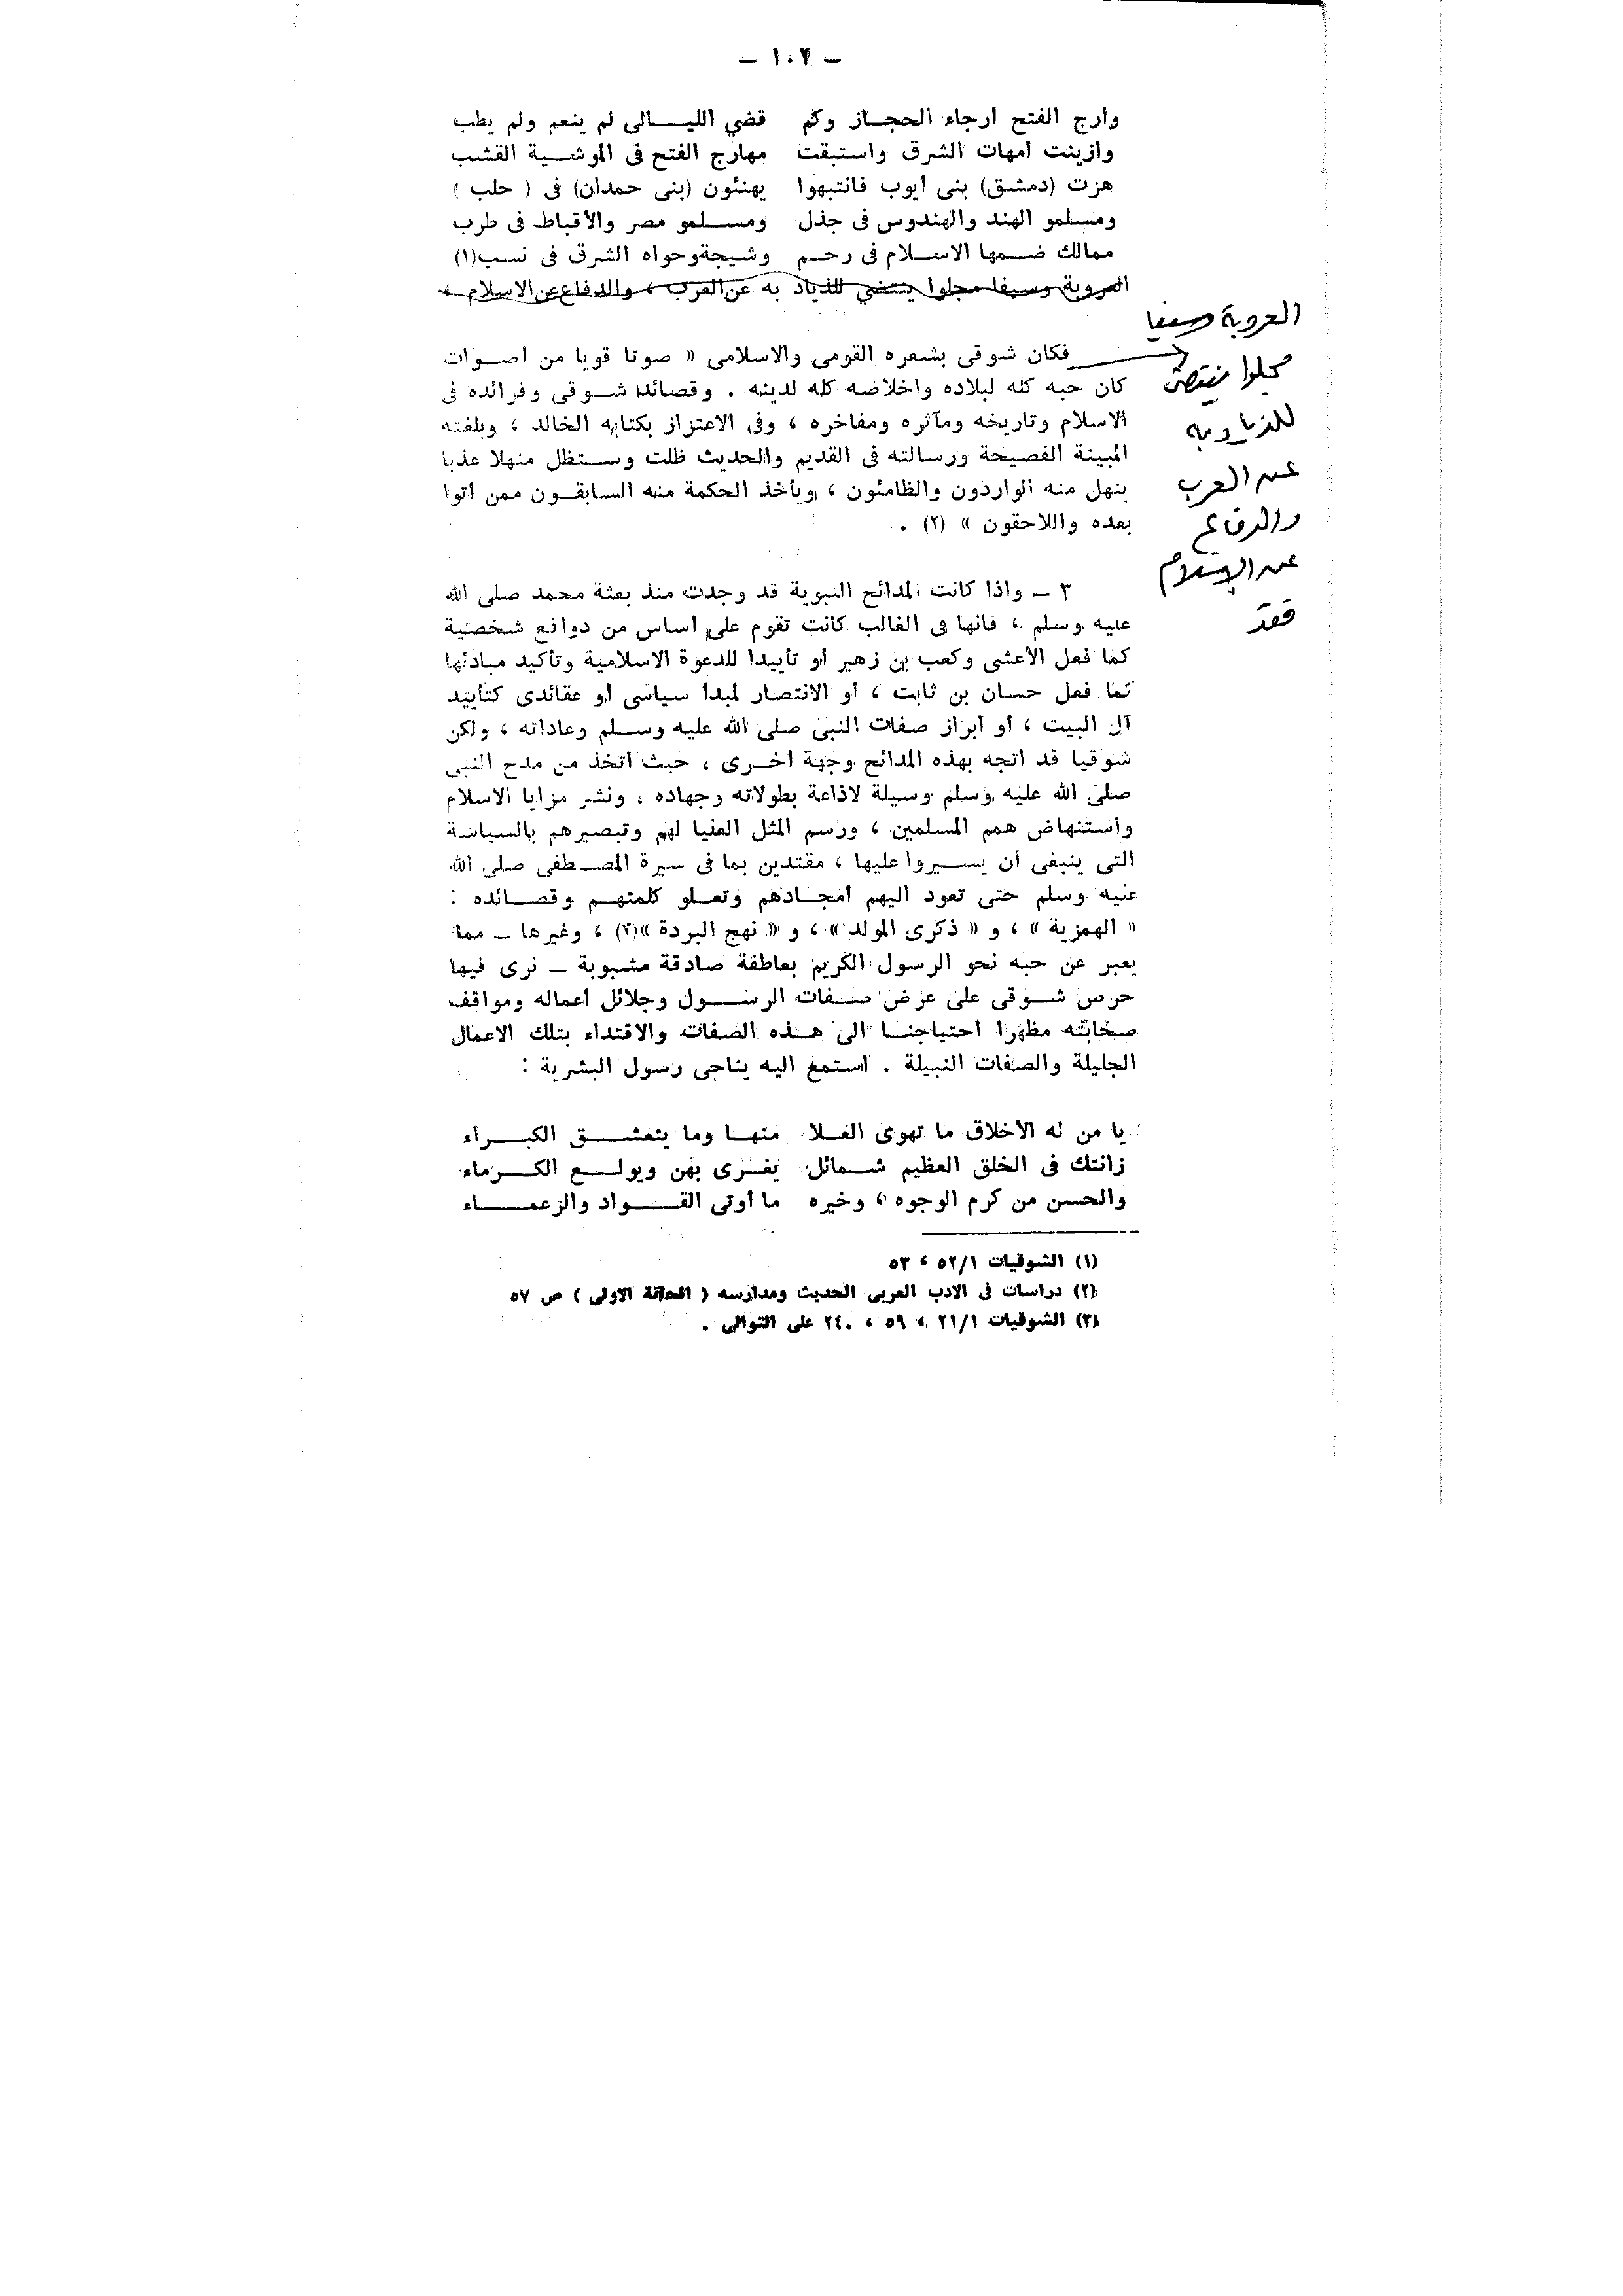 — ١٠٢ —
وأرج الفتح أرجاء الحجـــاز وكم قضي الليـــالى لم ينعم ولم يطب
وازينت أمهات الشرق واستبقت مهارج الفتح فى الموشـــية القشب
هزت (دمشق) بنى أيوب فانتبهوا يهنئون (بنى حمدان) فى ( حلب )
ومسلمو الهند والهندوس فى جذل ومســـلمو مصر والأقباط فى طرب
ممالك ضـــمها الاســـلام فى رحـــم وشيجة وحواه الشرق فى نسب(١)
العروبة وسيفا مجلوا ينتضي للذياد به عن العرب ، والدفاع عن الاسلام ،
العروبة وسيفا
مجلوا ينتضى
للذياد به
عن العرب
والدفاع
عن الإسلام
فقد
فكان شوقى بشعره القومى والاسلامى « صوتا قويا من أصـــوات
كان حبه كله لبلاده واخلاصه كله لدينه . وقصائد شـــوقى وفرائده فى
الاسلام وتاريخه ومآثره ومفاخره ، وفى الاعتزاز بكتابه الخالد ، وبلغته
المبينة الفصيحة ورسالته فى القديم والحديث ظلت وســـتظل منهلا عذبا
ينهل منه الواردون والظامئون ، ويأخذ الحكمة منه السابقـــون ممن أتوا
بعده واللاحقون » (٢) .
٣ ـ واذا كانت المدائح النبوية قد وجدت منذ بعثة محمد صلى الله
عليه وسلم ، فانها فى الغالب كانت تقوم على أساس من دوافع شخصية
كما فعل الأعشى وكعب بن زهير أو تأييدا للدعوة الاسلامية وتأكيد مبادئها
كما فعل حسان بن ثابت ، أو الانتصار لمبدأ سياسى أو عقائدى كتأييد
آل البيت ، أو ابراز صفات النبى صلى الله عليه وســـلم وعاداته ، ولكن
شوقيا قد اتجه بهذه المدائح وجهة أخـــرى ، حيث اتخذ من مدح النبى
صلى الله عليه وسلم وسيلة لاذاعة بطولاته وجهاده ، ونشر مزايا الاسلام
واستنهاض همم المسلمين ، ورسم المثل العليا لهم وتبصيرهم بالسياسة
التى ينبغى أن يســـيروا عليها ، مقتدين بما فى سيرة المصـــطفى صلى الله
عليه وسلم حتى تعود اليهم أمجـــادهم وتعـــلو كلمتهـــم وقصـــائده :
« الهمزية » ، و « ذكرى المولد » ، و « نهج البردة »(٣) ، وغيرها ـ مما
يعبر عن حبه نحو الرسول الكريم بعاطفة صادقة مشبوبة ـ نرى فيها
حرص شـــوقى على عرض صـــفات الرســـول وجلائل أعماله ومواقف
صحابته مظهرا احتياجنـــا الى هـــذه الصفات والاقتداء بتلك الاعمال
الجليلة والصفات النبيلة . استمع اليه يناجى رسول البشرية :
يا من له الأخلاق ما تهوى العـــلا منهـــا وما يتعشـــق الكبـــراء
زانتك فى الخلق العظيم شـــمائل يغـــرى بهن ويولـــع الكـــرماء
والحسن من كرم الوجوه ، وخيره ما أوتى القـــواد والزعمـــاء
(١) الشوقيات ٥٢/١ ، ٥٣
(٢) دراسات فى الادب العربى الحديث ومدارسه ( الحلقة الاولى ) ص ٥٧
(٣) الشوقيات ٢١/١ ، ٥٩ ، ٢٤٠ على التوالى .